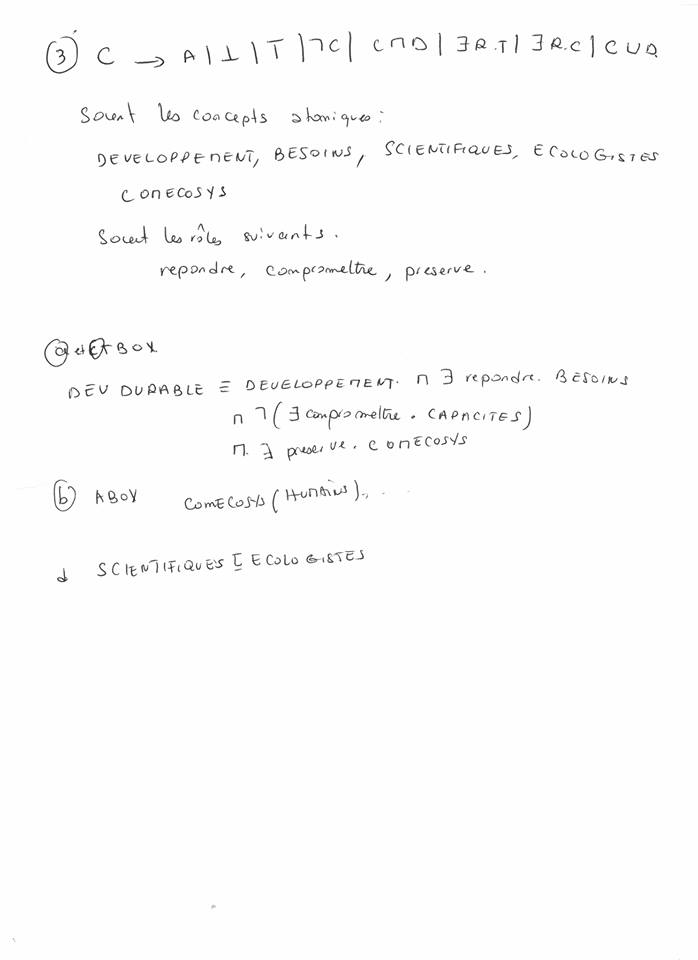 ③ C → A | ⊥ | T | ⌐C | C ⊓ D | ∃R.T | ∃R.C | C ∪ D
Soient les concepts atomiques :
DEVELOPPEMENT, BESOINS, SCIENTIFIQUES, ECOLOGISTES
COMECOSYS
Soient les rôles suivants.
repondre, compromettre, preserve.
ⓐ et ⓒ TBOX
DEV DURABLE ≡ DEVELOPPEMENT. ⊓ ∃ repondre. BESOINS
⊓ ⌐(∃ compromettre . CAPACITES)
⊓. ∃ preserve. COMECOSYS
ⓑ ABOX COMECOSYS (HUMAINS)...
d SCIENTIFIQUES ⊑ ECOLOGISTES